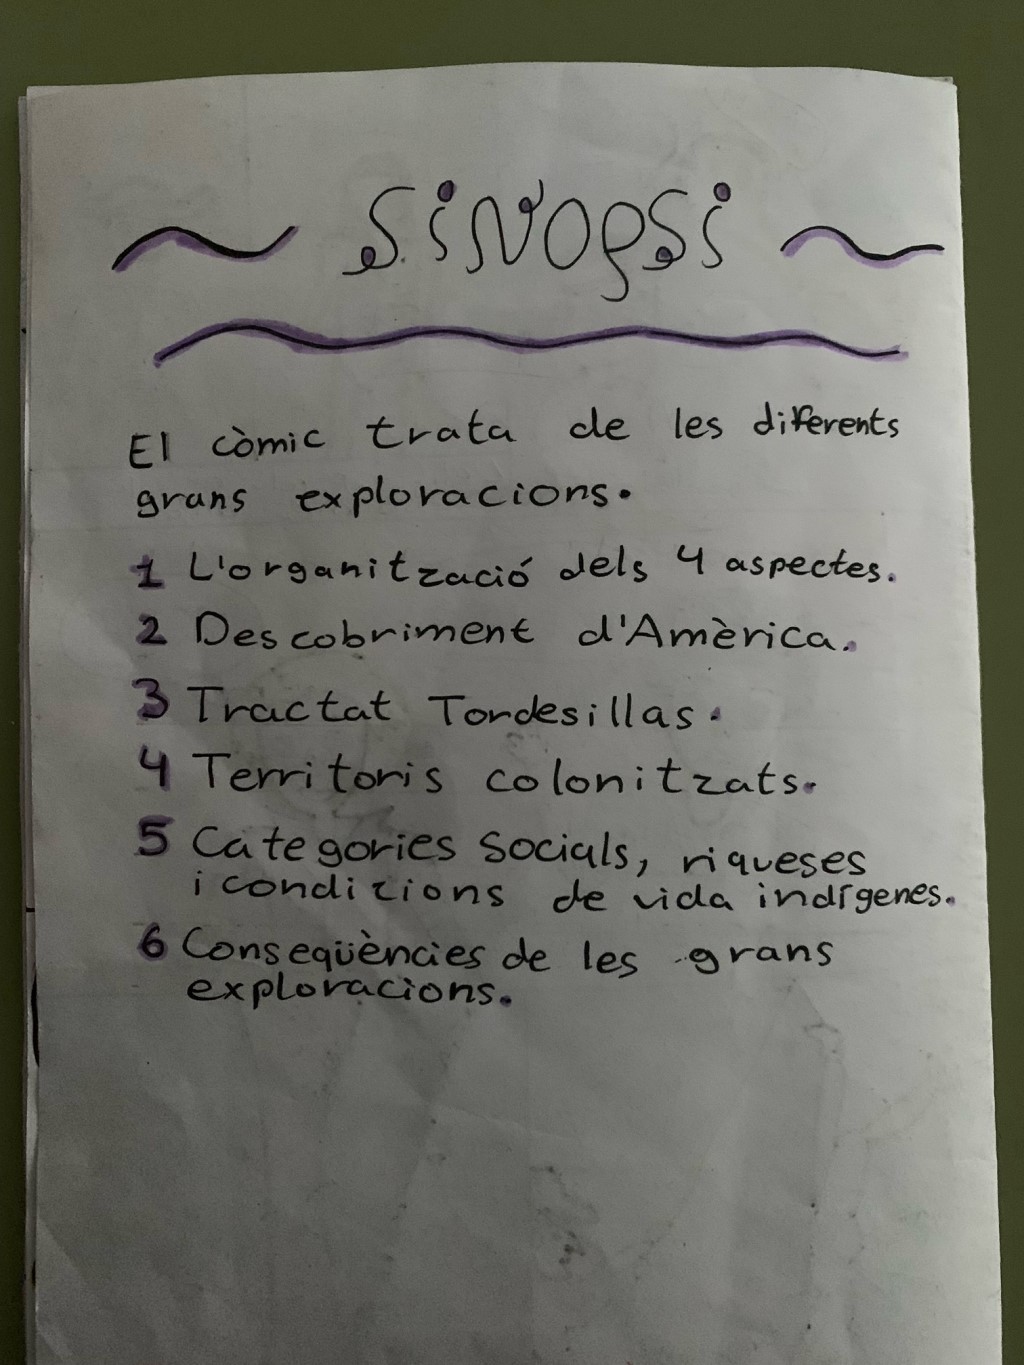 SiNOPSi
El còmic trata de les diferents
grans exploracions.
1 L'organització dels 4 aspectes.
2 Descobriment d'Amèrica.
3 Tractat Tordesillas.
4 Territoris colonitzats.
5 Categories Socials, riqueses
i condicions de vida indígenes.
6 Conseqüències de les grans
exploracions.